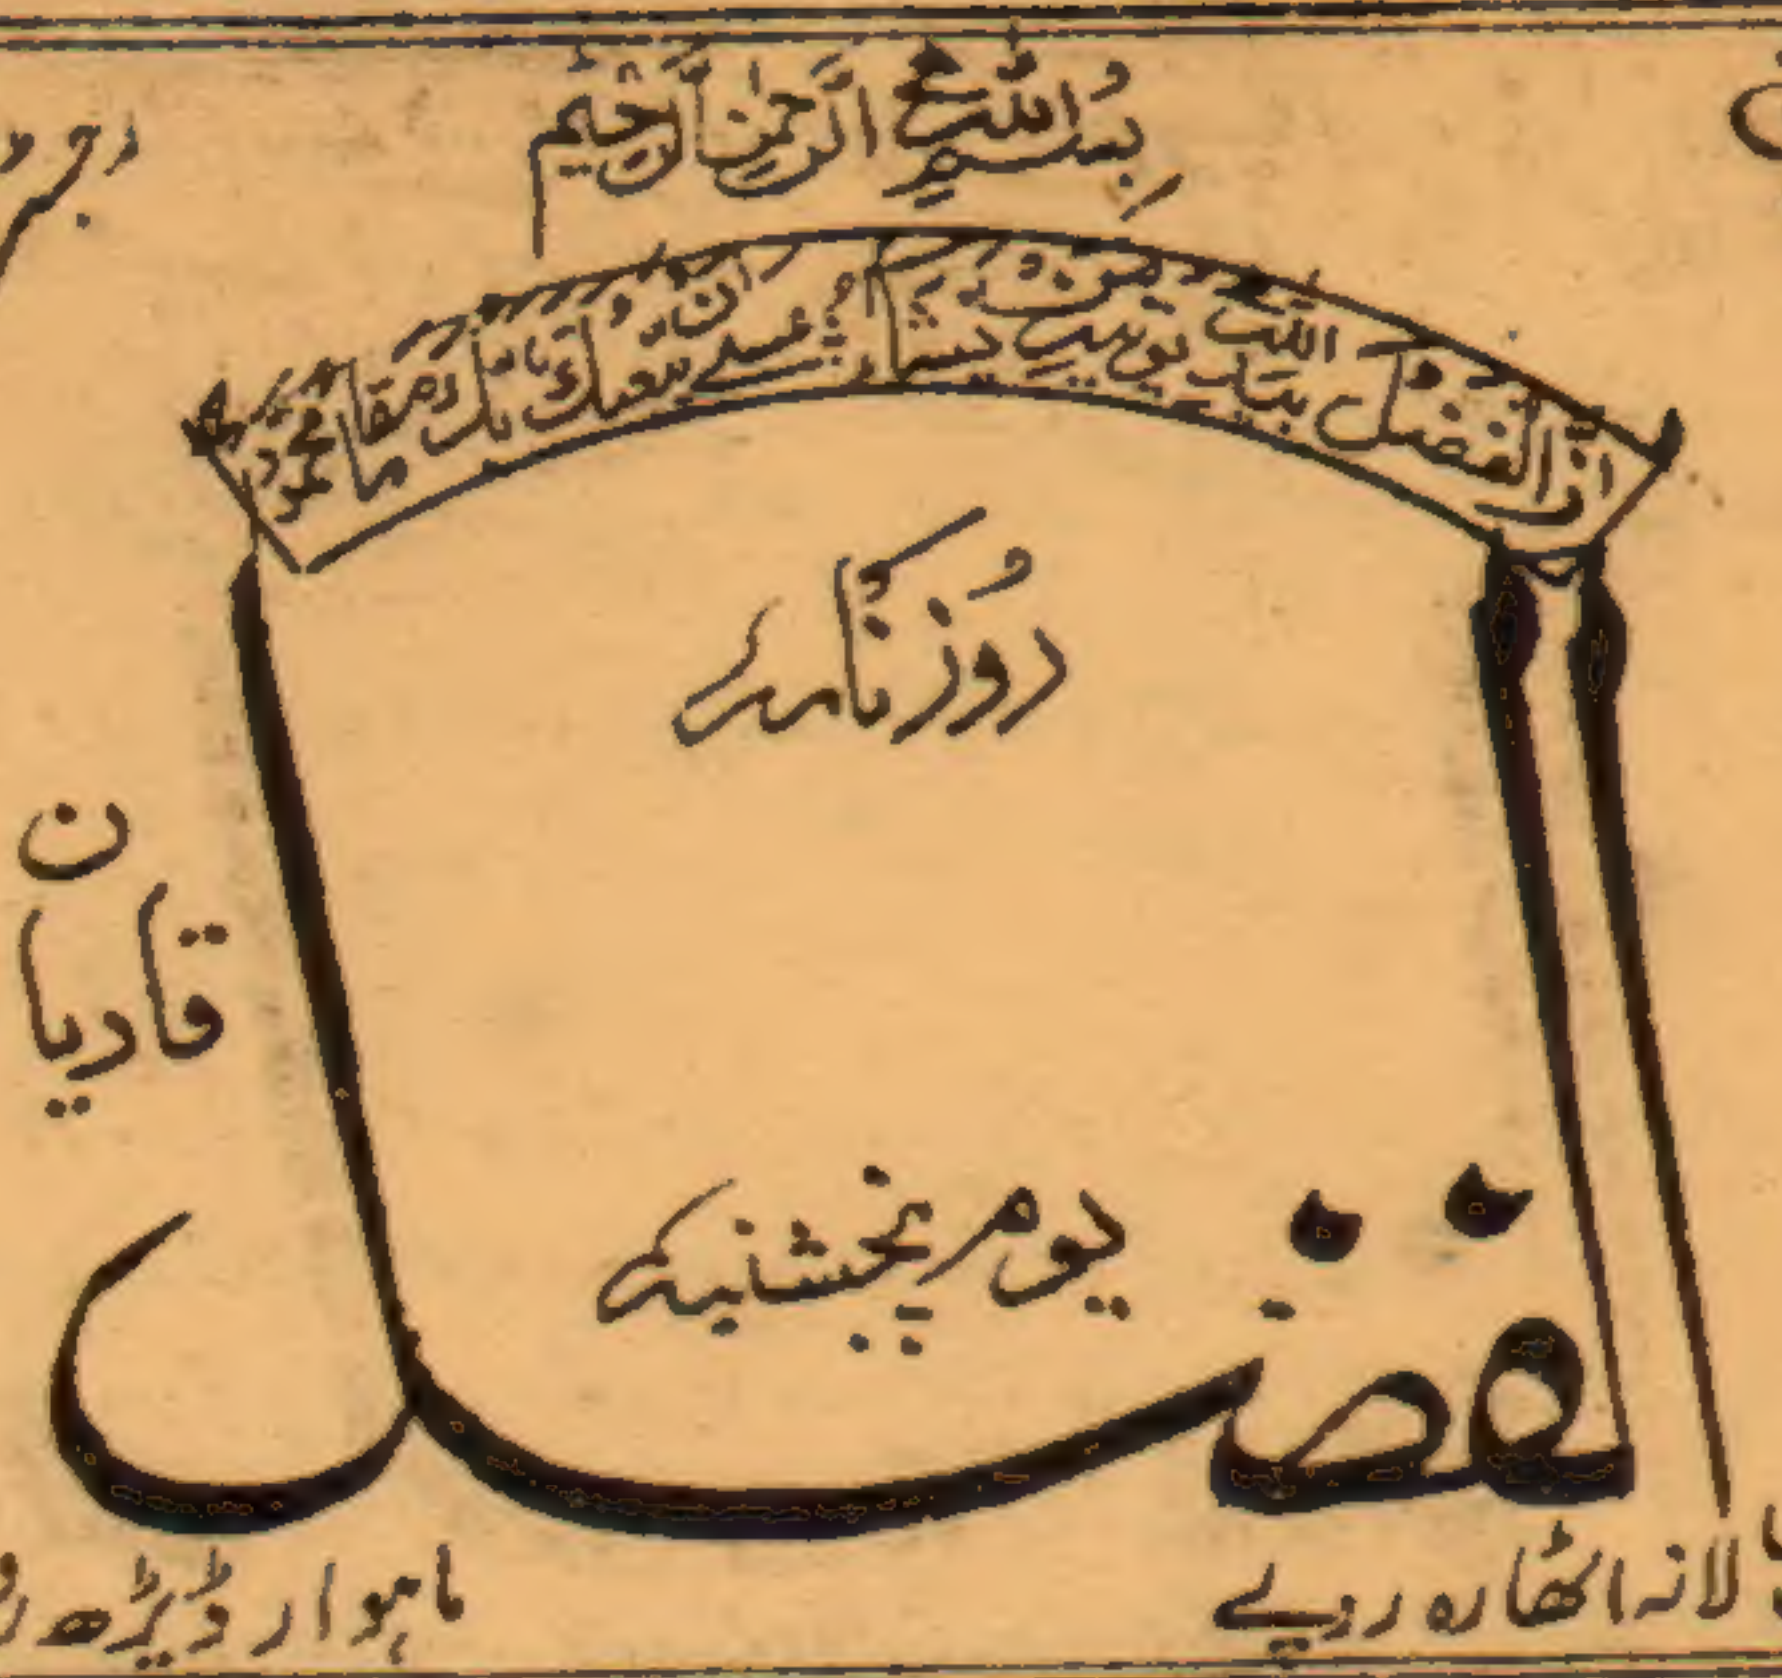 بسم الله الرحمن الرحيم
ان الفضل بيد الله يؤتيه من يشاء عسى ان يبعثك ربك مقاما محمودا
روزنامہ
الفضل
قادیان
یوم پنجشنبہ
لانہ اٹھارہ روپے
ماہوار ڈیڑھ